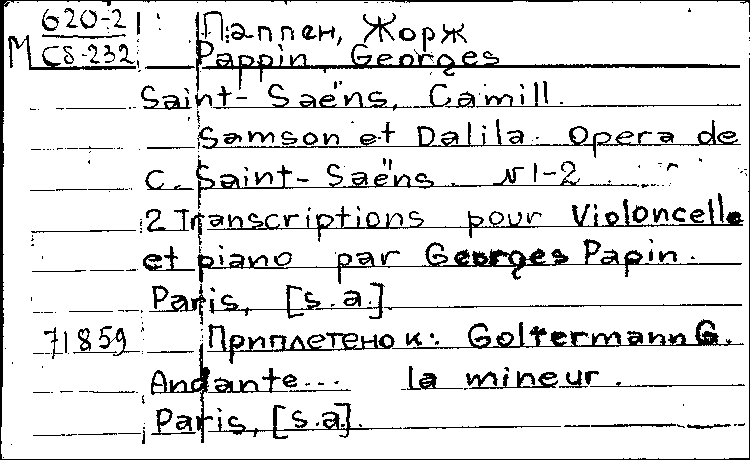 620-2
М Сб-232
Паппен, Жорж
Pappin Georges
Saint-Saëns, Camill.
Samson et Dalila. Opera de
C. Saint-Saëns. N 1-2
2 Transcriptions pour Violoncelle
et piano par Georges Papin.
Paris, [s.a.]
71859 Приплетено к: Goltermann G.
Andante... la mineur.
Paris, [s.a].